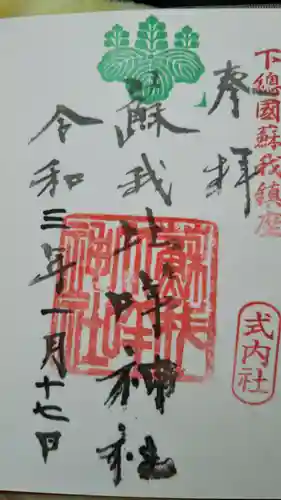 下總國蘇我鎮座
奉拝
式内社
蘇我比咩神社
令和三年一月十七日